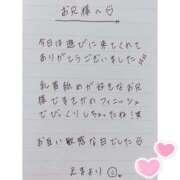 お兄様へ♡
今日は遊びに来てくれて
ありがとうございました
乳首舐めが好きなお兄
様でまさかのフィニッシュ
びっくりしちゃったね！
お互い敏感な日でした
より